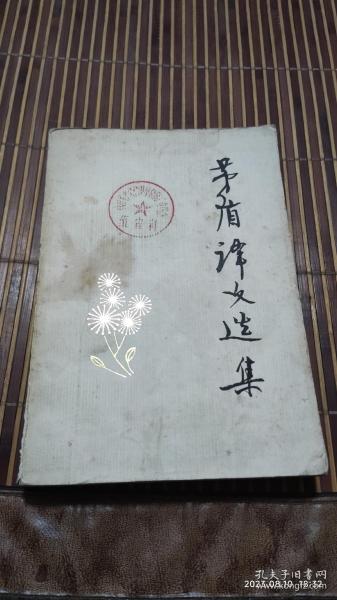 茅盾譯文选集
孔夫子旧书网
2023.08.10 19:32